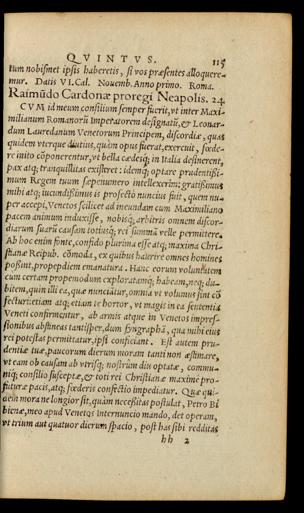 QVINTVS. 115
tum nobismet ipsis haberetis, si vos præsentes alloquere-
mur. Datis VI. Cal. Nouemb. Anno primo. Roma.
Raimūdo Cardonæ proregi Neapolis. 24.
CVM id meum consilium semper fuerit, vt inter Maxi-
milianum Romanorū Imperatorem designatū, & Leonar-
dum Lauredanum Venetorum Principem, discordiæ, quas
quidem vterque diutius, quàm opus fuerat, exercuit, fœde-
re inito cōponerentur, vt bella cædesq; in Italia desinerent,
pax atq; tranquillitas existeret: idemq; optare prudentißi-
mum Regem tuum sæpenumero intellexerim: gratißimus
mihi atq; iucundißimus is profectò nuncius fuit, quem nu-
per accepi, Venetos scilicet ad ineundam cum Maximiliano
pacem animum induxisse, nobisq; arbitris omnem discor-
diarum suarū causam totiusq; rei summā velle permittere.
Ab hoc enim fonte, confido plurima esse atq; maxima Chri-
stianæ Reipub. cōmoda, ex quibus haurire omnes homines
poßint, propediem emanatura. Hanc eorum voluntatem
cum certam propemodum exploratamq; habeam, neq; du-
bitem, quin illi ea, quæ nunciātur, omnia vt volumus sint cō
fecturi: etiam atq; etiam te hortor, vt magis in ea sententia
Veneti confirmentur, ab armis atque in Venetos impres-
sionibus abstineas tantisper, dum syngrapha, qua mihi eius
rei potestas permittitur, ipsi conficiant. Est autem pru-
dentiæ tuæ, paucorum dierum moram tanti non æstimare,
vt eam ob causam ab vtrisq; nostrûm diu optatæ, commu-
niq; consilio susceptæ, & toti rei Christianæ maximè pro-
futuræ pacis, atq; fœderis confectio impediatur. Quæ qui-
dem mora ne longior sit, quàm neceßitas postulat, Petro Bi
bienæ, meo apud Venetos internuncio mando, det operam,
vt trium aut quatuor dierum spacio, post has sibi redditas
hh 2